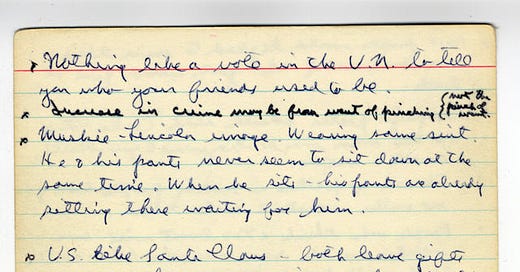 Nothing like a vote in the U.N. to tell
you who your friends used to be.
Increase in crime may be from want of pinching {not the
pinch of
want.
Muskie - Lincoln image. Wearing same suit.
He & his pants never seem to sit down at the
same time. When he sits - his pants are already
setting there waiting for him.
U.S. like Santa Claus - both leave gifts